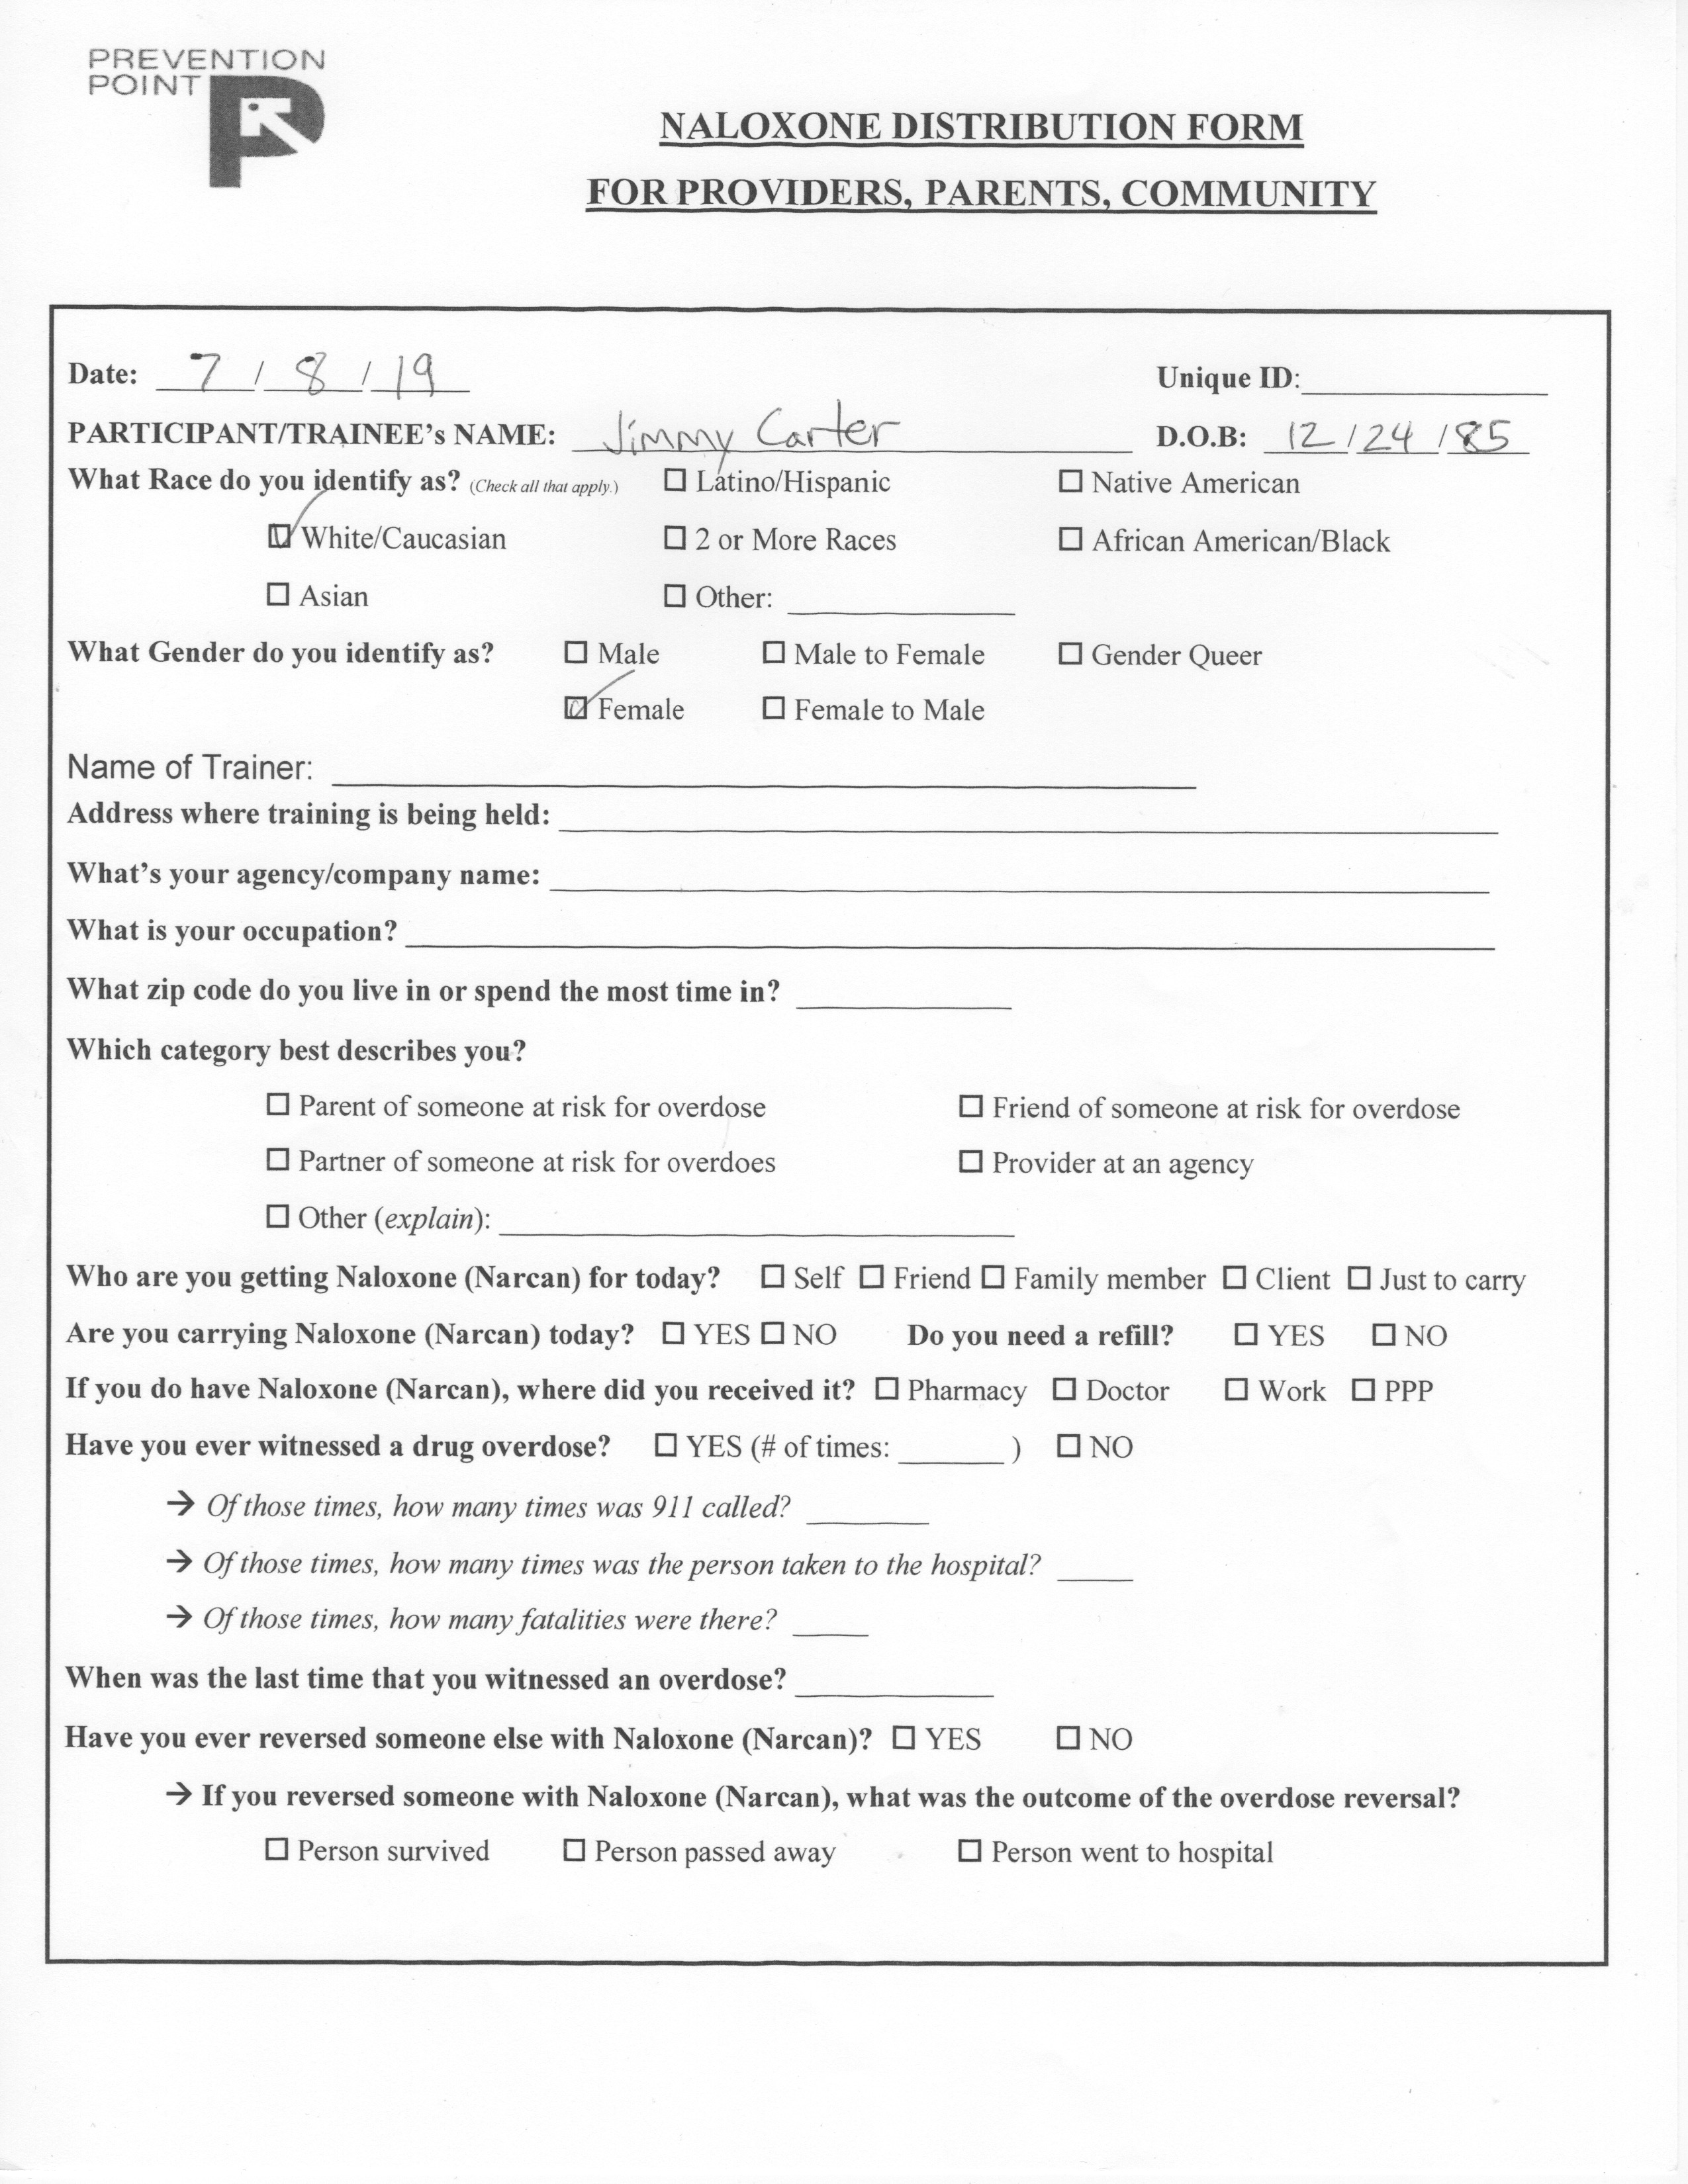 PREVENTION
POINT
NALOXONE DISTRIBUTION FORM
FOR PROVIDERS, PARENTS, COMMUNITY
Date: 7 / 8 / 19 Unique ID:
PARTICIPANT/TRAINEE's NAME: Jimmy Carter D.O.B: 12 / 24 / 85
What Race do you identify as? (Check all that apply.) ☐ Latino/Hispanic ☐ Native American
☑ White/Caucasian ☐ 2 or More Races ☐ African American/Black
☐ Asian ☐ Other: ____
What Gender do you identify as? ☐ Male ☐ Male to Female ☐ Gender Queer
☑ Female ☐ Female to Male
Name of Trainer: ____
Address where training is being held: ____
What's your agency/company name: ____
What is your occupation? ____
What zip code do you live in or spend the most time in? ____
Which category best describes you?
☐ Parent of someone at risk for overdose ☐ Friend of someone at risk for overdose
☐ Partner of someone at risk for overdoes ☐ Provider at an agency
☐ Other (explain): ____
Who are you getting Naloxone (Narcan) for today? ☐ Self ☐ Friend ☐ Family member ☐ Client ☐ Just to carry
Are you carrying Naloxone (Narcan) today? ☐ YES ☐ NO Do you need a refill? ☐ YES ☐ NO
If you do have Naloxone (Narcan), where did you received it? ☐ Pharmacy ☐ Doctor ☐ Work ☐ PPP
Have you ever witnessed a drug overdose? ☐ YES (# of times: ____ ) ☐ NO
→ Of those times, how many times was 911 called? ____
→ Of those times, how many times was the person taken to the hospital? ____
→ Of those times, how many fatalities were there? ____
When was the last time that you witnessed an overdose? ____
Have you ever reversed someone else with Naloxone (Narcan)? ☐ YES ☐ NO
→ If you reversed someone with Naloxone (Narcan), what was the outcome of the overdose reversal?
☐ Person survived ☐ Person passed away ☐ Person went to hospital